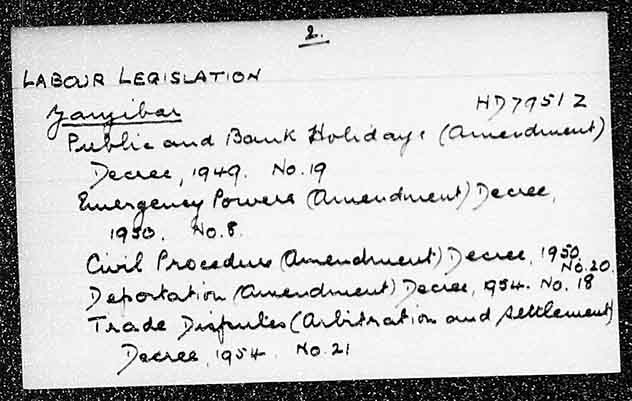 2.
LABOUR LEGISLATION
Zanzibar HD7951Z
Public and Bank Holidays (Amendment)
Decree, 1949. No.19
Emergency Powers (Amendment) Decree,
1950. No.8.
Civil Procedure (Amendment) Decree, 1950
No.20.
Deportation (Amendment) Decree, 1954. No. 18
Trade Disputes (Arbitration and Settlement)
Decree, 1954. No.21